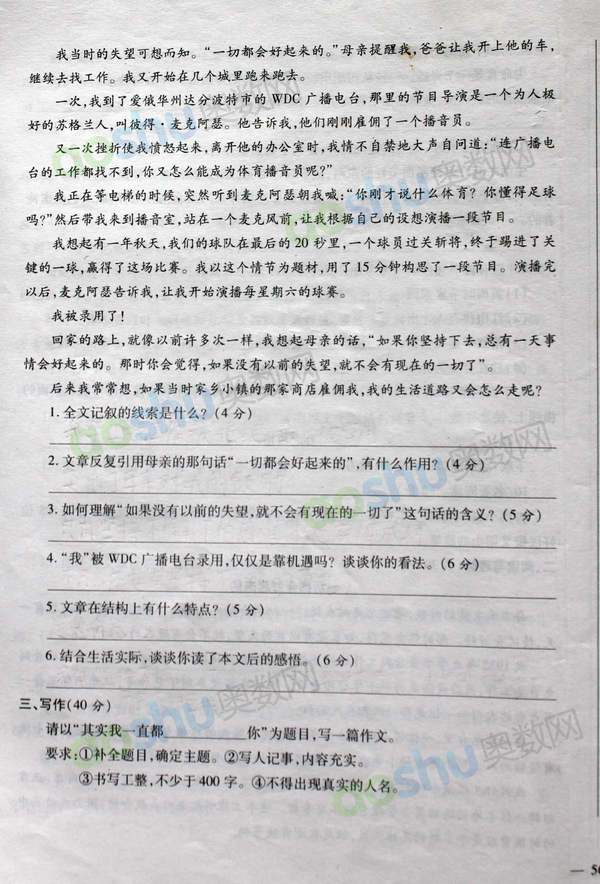 我当时的失望可想而知。“一切都会好起来的。”母亲提醒我,爸爸让我开上他的车,
继续去找工作。我又开始在几个城里跑来跑去。
一次,我到了爱俄华州达分波特市的 WDC 广播电台,那里的节目导演是一个为人极
好的苏格兰人,叫彼得·麦克阿瑟。他告诉我,他们刚刚雇佣了一个播音员。
又一次挫折使我愤怒起来,离开他的办公室时,我情不自禁地大声自问道:“连广播电
台的工作都找不到,你又怎么能成为体育播音员呢?”
我正在等电梯的时候,突然听到麦克阿瑟朝我喊:“你刚才说什么体育?你懂得足球
吗?”然后带我来到播音室,站在一个麦克风前,让我根据自己的设想演播一段节目。
我想起有一年秋天,我们的球队在最后的 20 秒里,一个球员过关斩将,终于踢进了关
键的一球,赢得了这场比赛。我以这个情节为题材,用了 15 分钟构思了一段节目。演播完
以后,麦克阿瑟告诉我,让我开始演播每星期六的球赛。
我被录用了!
回家的路上,就像以前许多次一样,我想起母亲的话,“如果你坚持下去,总有一天事
情会好起来的。那时你会觉得,如果没有以前的失望,就不会有现在的一切了”。
后来我常常想,如果当时家乡小镇的那家商店雇佣我,我的生活道路又会怎么走呢?
1. 全文记叙的线索是什么?(4 分)
2. 文章反复引用母亲的那句话“一切都会好起来的”,有什么作用?(4 分)
3. 如何理解“如果没有以前的失望,就不会有现在的一切了”这句话的含义?(5 分)
4. “我”被 WDC 广播电台录用,仅仅是靠机遇吗?谈谈你的看法。(6 分)
5. 文章在结构上有什么特点?(5 分)
6. 结合生活实际,谈谈你读了本文后的感悟。(6 分)
三、写作(40 分)
请以“其实我一直都 你”为题目,写一篇作文。
要求:①补全题目,确定主题。②写人记事,内容充实。
③书写工整,不少于 400 字。④不得出现真实的人名。
aoshu奥数网
aoshu奥数网
aoshu奥数网
aoshu奥数网
aoshu奥数网
aoshu奥数网